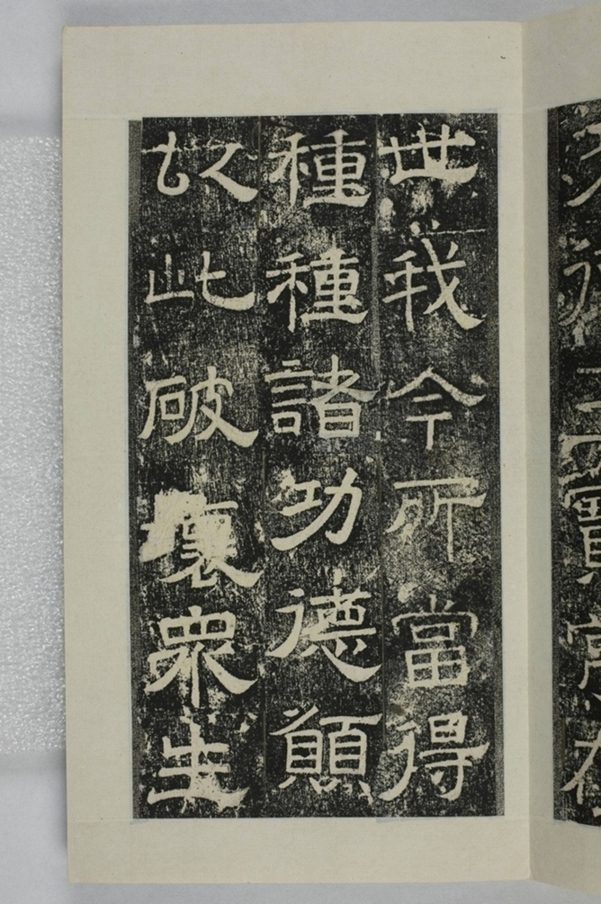 世我今所當得
種種諸功德願
以此破壞衆生